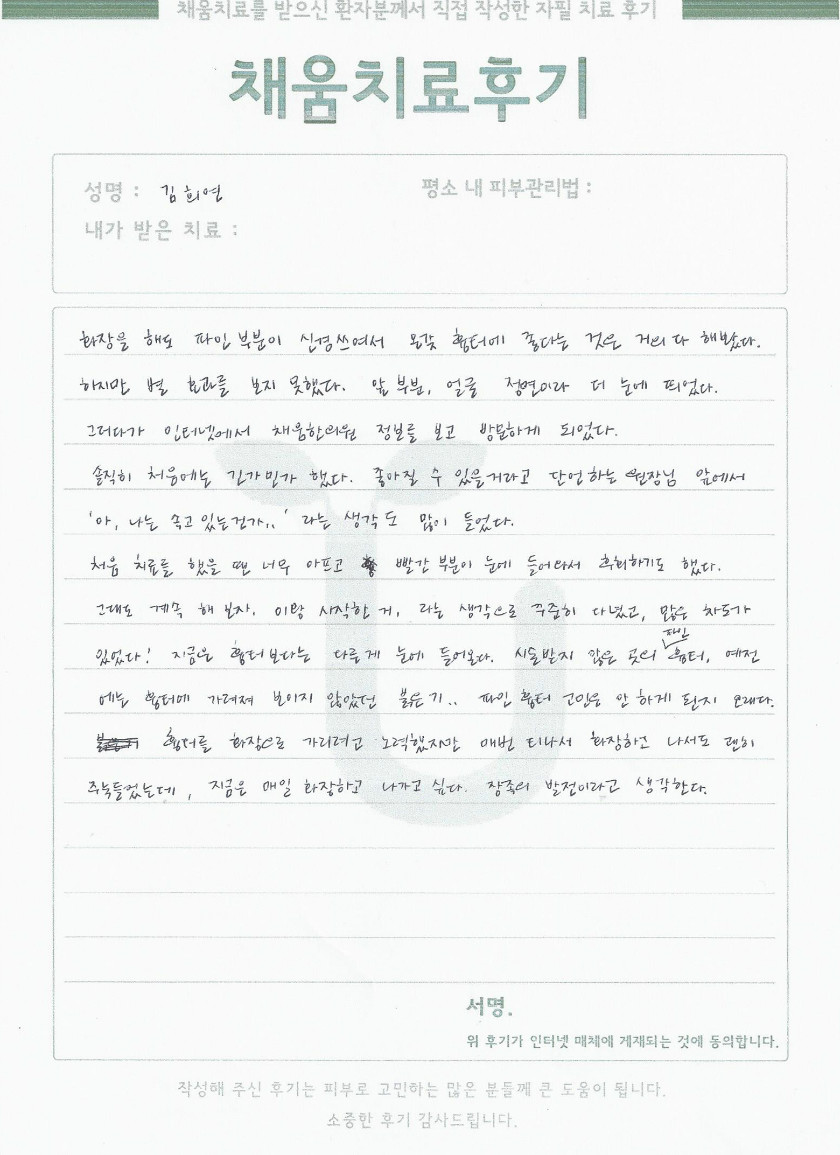 채움치료를 받으신 환자분께서 직접 작성한 자필 치료 후기
채움치료후기
성명 : 김희연
평소 내 피부관리법 :
내가 받은 치료 :
화장을 해도 파인 부분이 신경쓰여서 온갖 흉터에 좋다는 것은 거의 다 해봤다.
하지만 별 효과를 보지 못했다. 앞 부분, 얼굴 정면이라 더 눈에 띄었다.
그러다가 인터넷에서 채움한의원 정보를 보고 방문하게 되었다.
솔직히 처음에는 긴가민가 했다. 좋아질 수 있을거라고 단언하는 원장님 앞에서
'아, 나는 속고 있는건가..' 라는 생각도 많이 들었다.
처음 치료를 했을 땐 너무 아프고 빨간 부분이 눈에 들어와서 후회하기도 했다.
그래도 계속 해보자. 이왕 시작한 거, 라는 생각으로 꾸준히 다녔고, 많은 차도가
있었다! 지금은 흉터보다는 다르게 눈에 들어온다. 시술받지 않은 곳의 파인 흉터, 예전
에는 흉터에 가려져 보이지 않았던 붉은 기.. 파인 흉터 고민은 안 하게 된지 오래다.
흉터를 화장으로 가리려고 노력했지만 매번 티나서 화장하고 나서도 괜히
주눅들었는데, 지금은 매일 화장하고 나가고 싶다. 장족의 발전이라고 생각한다.
서명.
위 후기가 인터넷 매체에 게재되는 것에 동의합니다.
작성해 주신 후기는 피부로 고민하는 많은 분들께 큰 도움이 됩니다.
소중한 후기 감사드립니다.